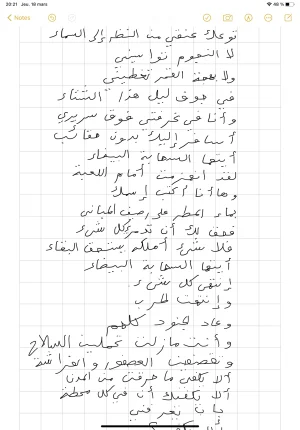 20:21 Jeu. 18 mars
48 %
Notes
توعك عنقي من النظر إلى السماء
لا النجوم تواسيني
ولا بهجة القمر تخطيني
في جوف ليل هذا الشتاء
وأنا في غرفتي فوق سريري
أسافر إليك بدون حقائب
أيتها السحابة البيضاء
لقد انهزمت أمام اللعبة
وها أنا أكتب إسمك
بماء المطر على رصيف المباني
فحق لك أن تدمري كل شيء
فلا شيء أملكه يستحق البقاء
أيتها السحابة البيضاء
إنتهى كل شيء
وإنتهت الحرب
وعاد الجنود كلهم
وأنت مازلت تحملين السلاح
وتقصفين العصفور والفراشة
ألا يكفي ما حرقت من المدن
ألا يكفيك أن في كل محطة